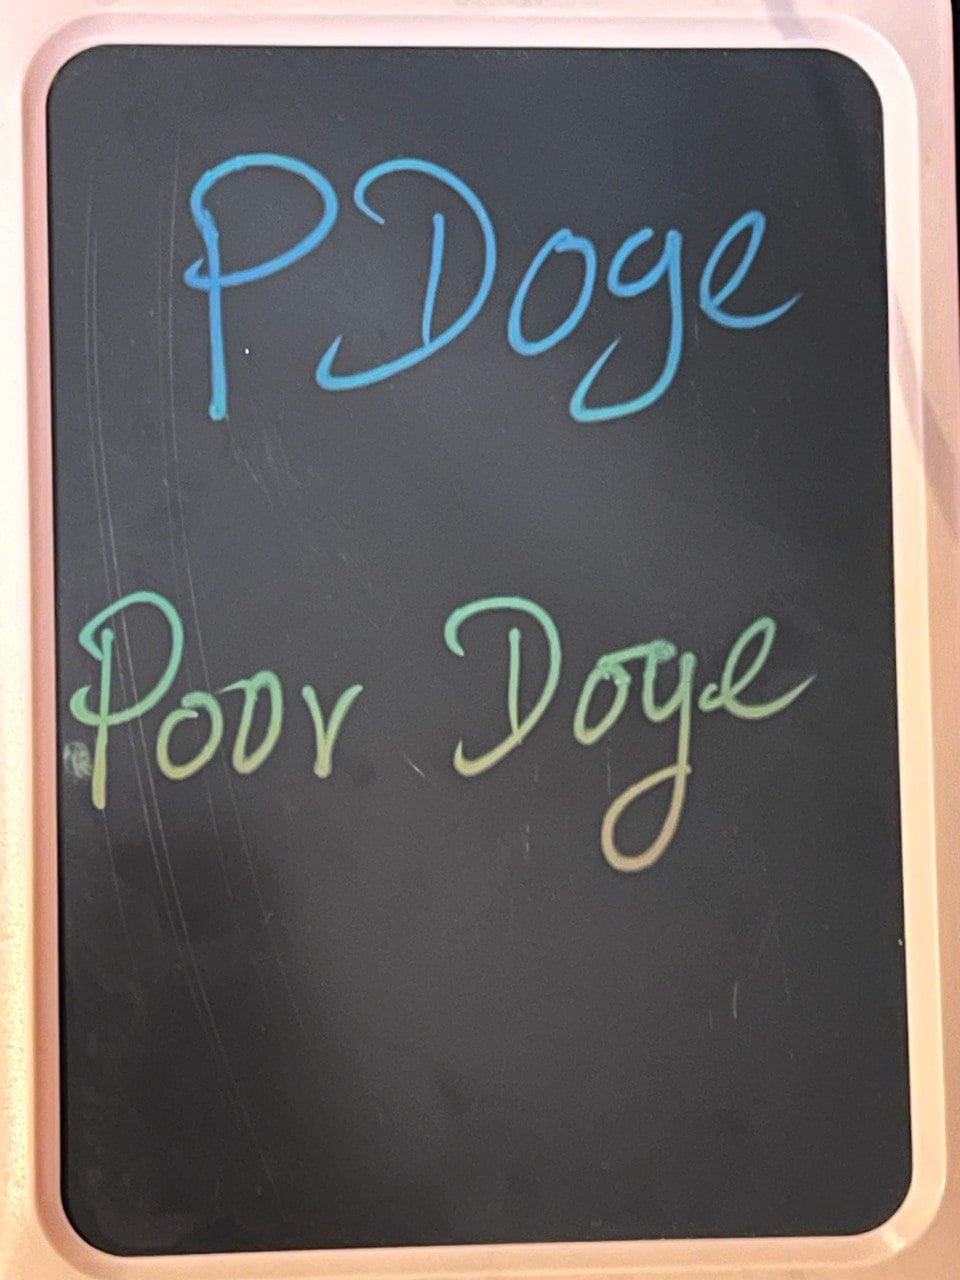 PDoge
Poor Doge